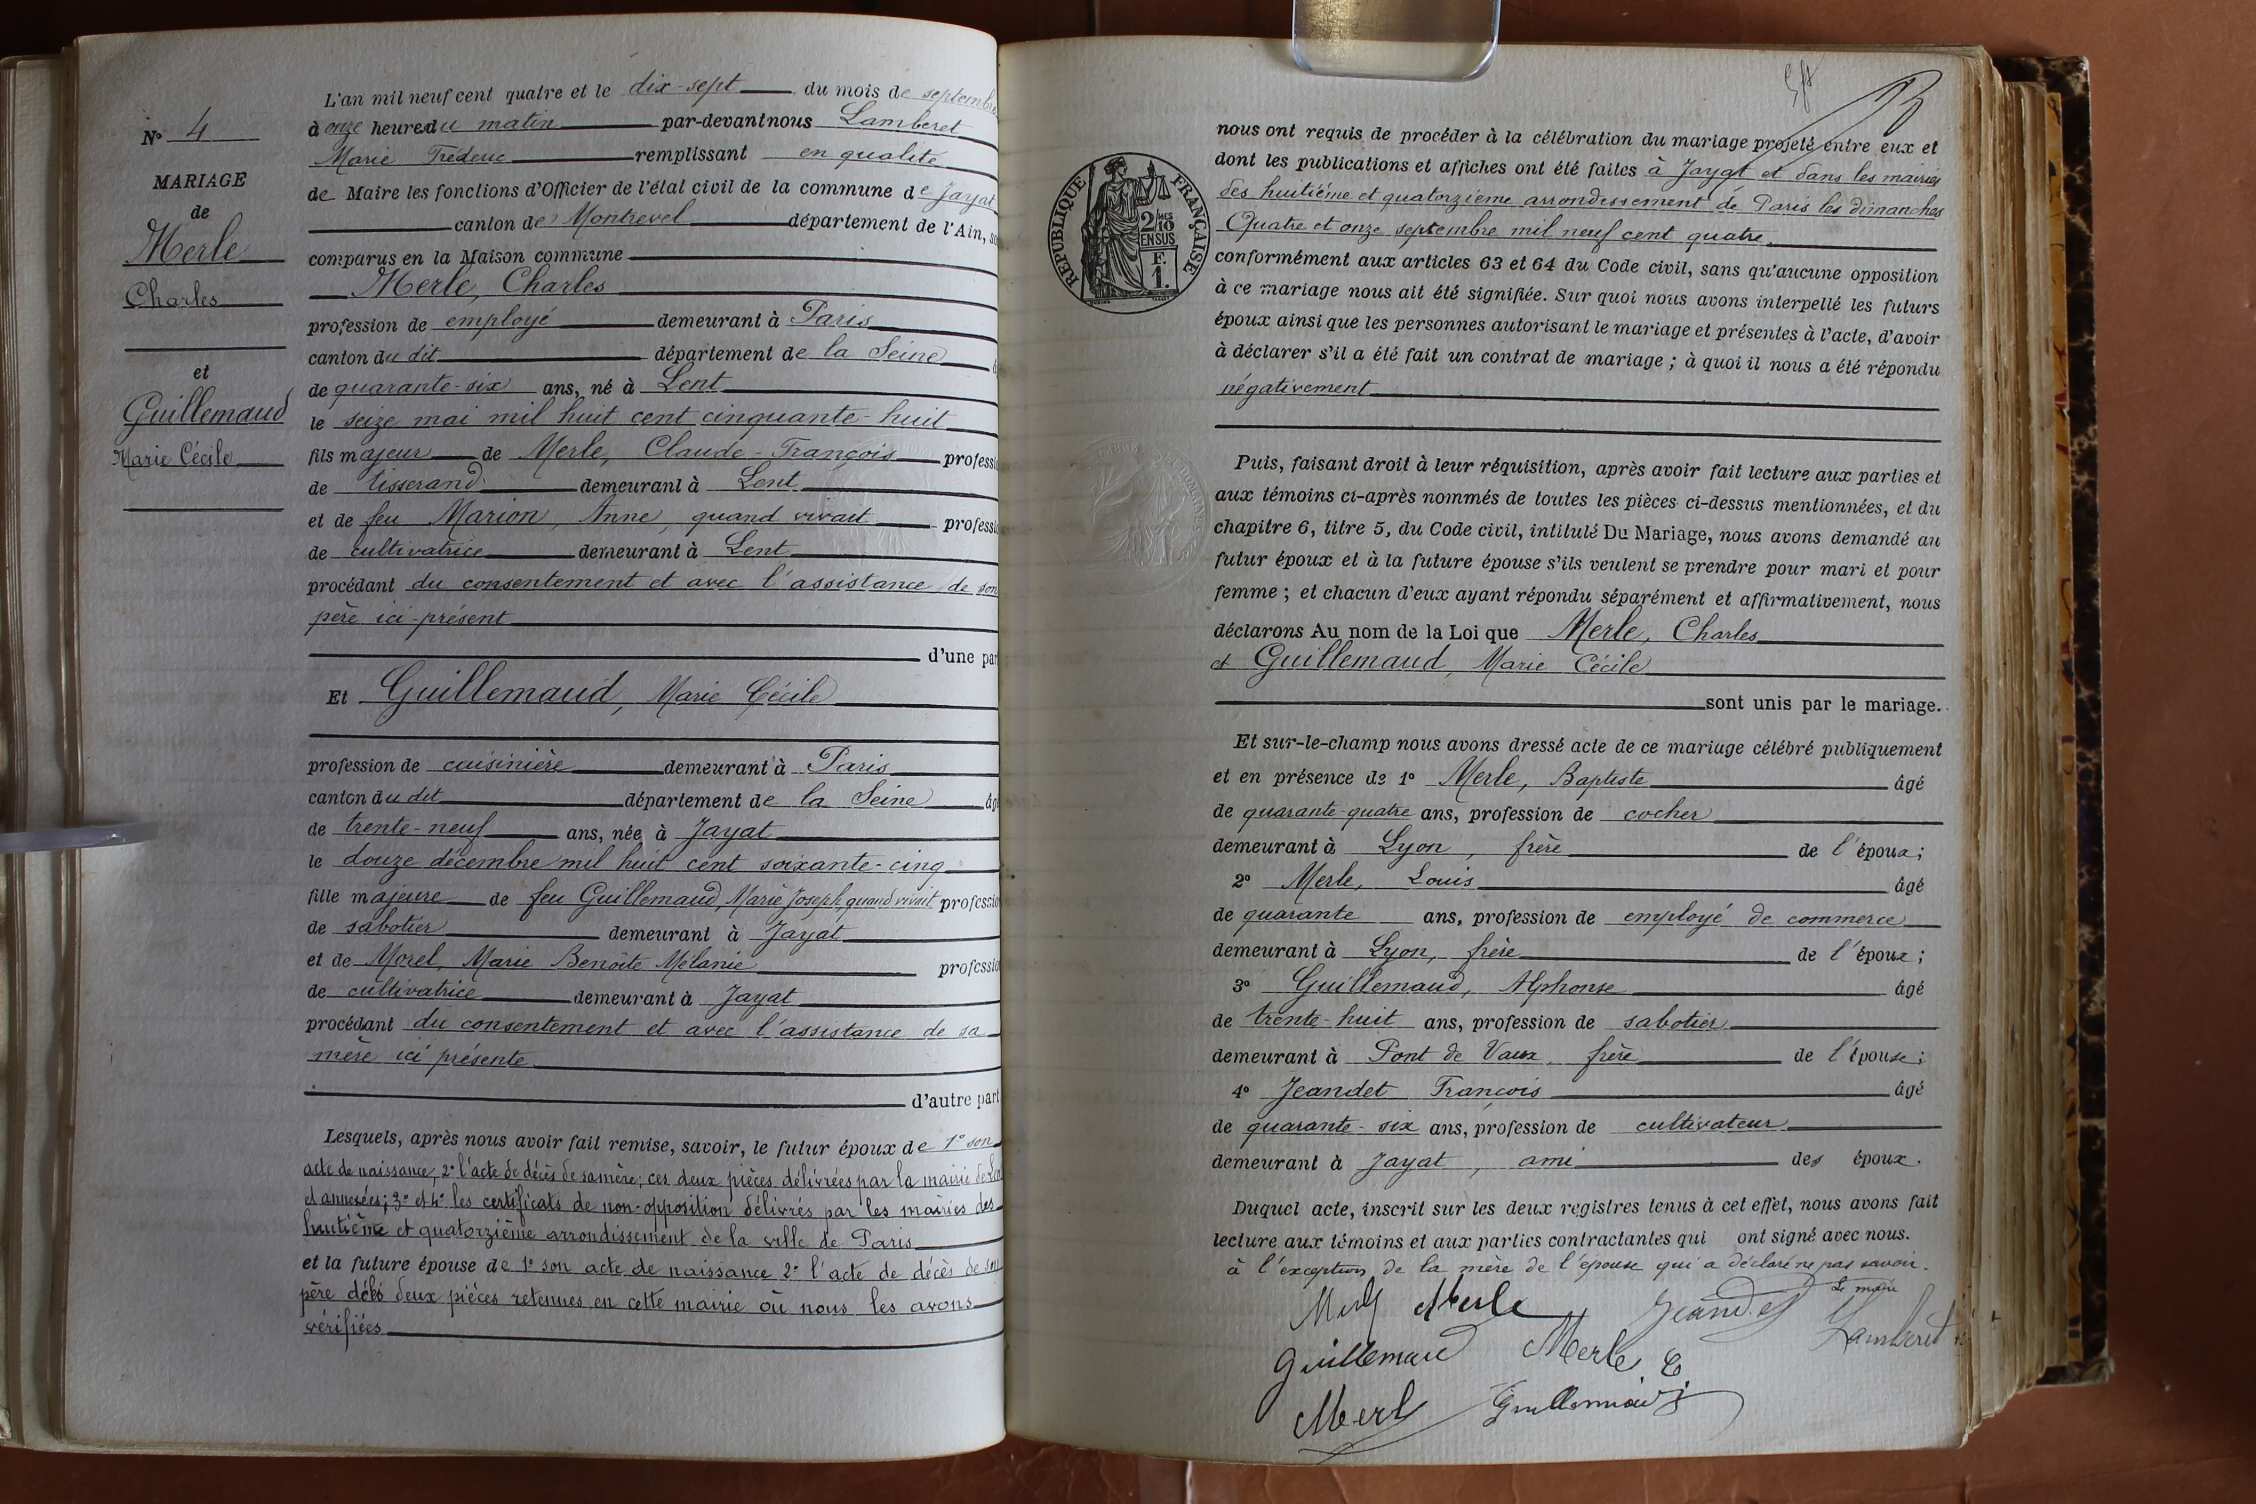 N° 4
MARIAGE
de
Merle
Charles
et
Guillemaud
Marie Cécile
L'an mil neuf cent quatre et le dix-sept du mois de septembre
à onze heures du matin par-devant nous Lamberet
Marie Fréderic remplissant en qualité
de Maire les fonctions d'Officier de l'état civil de la commune de Jayat
canton de Montrevel département de l'Ain, so
comparus en la Maison commune
Merle, Charles
profession de employé demeurant à Paris
canton du dit département de la Seine
de quarante-six ans, né à Lent
le seize mai mil huit cent cinquante-huit
fils majeur de Merle, Claude-François professi
de tisserand demeurant à Lent
et de feu Marion, Anne, quand vivait professi
de cultivatrice demeurant à Lent
procédant du consentement et avec l'assistance de son
père ici-présent
d'une part
Et Guillemaud, Marie Cécile
profession de cuisinière demeurant à Paris
canton du dit département de la Seine âgé
de trente-neuf ans, née à Jayat
le douze décembre mil huit cent soixante-cinq
fille majeure de feu Guillemaud, Marie Joseph, quand vivait professio
de sabotier demeurant à Jayat
et de Morel, Marie Benoîte Mélanie professio
de cultivatrice demeurant à Jayat
procédant du consentement et avec l'assistance de sa
mère ici présente
d'autre part
Lesquels, après nous avoir fait remise, savoir, le futur époux de 1° son
acte de naissance, 2° l'acte de décès de sa mère; ces deux pièces délivrées par la mairie de Lent
et annexées; 3° et 4° les certificats de non-opposition délivrés par les mairies des
huitième et quatorzième arrondissement de la ville de Paris
et la future épouse de 1° son acte de naissance 2° l'acte de décès de son
père deux pièces retenues en cette mairie où nous les avons
vérifiées
RÉPUBLIQUE FRANÇAISE
2/10 MES
EN SUS
F.
1.
nous ont requis de procéder à la célébration du mariage projeté entre eux et
dont les publications et affiches ont été faites à Jayat et dans les mairies
des huitième et quatorzième arrondissement de Paris les dimanches
Quatre et onze septembre mil neuf cent quatre
conformément aux articles 63 et 64 du Code civil, sans qu'aucune opposition
à ce mariage nous ait été signifiée. Sur quoi nous avons interpellé les futurs
époux ainsi que les personnes autorisant le mariage et présentes à l'acte, d'avoir
à déclarer s'il a été fait un contrat de mariage ; à quoi il nous a été répondu
négativement
Puis, faisant droit à leur réquisition, après avoir fait lecture aux parties et
aux témoins ci-après nommés de toutes les pièces ci-dessus mentionnées, et du
chapitre 6, titre 5, du Code civil, intitulé Du Mariage, nous avons demandé au
futur époux et à la future épouse s'ils veulent se prendre pour mari et pour
femme ; et chacun d'eux ayant répondu séparément et affirmativement, nous
déclarons Au nom de la Loi que Merle, Charles
et Guillemaud, Marie Cécile
sont unis par le mariage.
Et sur-le-champ nous avons dressé acte de ce mariage célébré publiquement
et en présence de 1° Merle, Baptiste âgé
de quarante-quatre ans, profession de cocher
demeurant à Lyon, frère de l'époux;
2° Merle, Louis âgé
de quarante ans, profession de employé de commerce
demeurant à Lyon, frère de l'époux;
3° Guillemaud, Alphonse âgé
de trente-huit ans, profession de sabotier
demeurant à Pont de Vaux, frère de l'épouse;
4° Jeandet François âgé
de quarante-six ans, profession de cultivateur
demeurant à Jayat, ami des époux.
Duquel acte, inscrit sur les deux registres tenus à cet effet, nous avons fait
lecture aux témoins et aux parties contractantes qui ont signé avec nous.
à l'exception de la mère de l'épouse qui a déclaré ne pas savoir.
Le maire
Merle Merle Jeandet Lamberet
Guillemaud Merle C
Merle Guillemaud